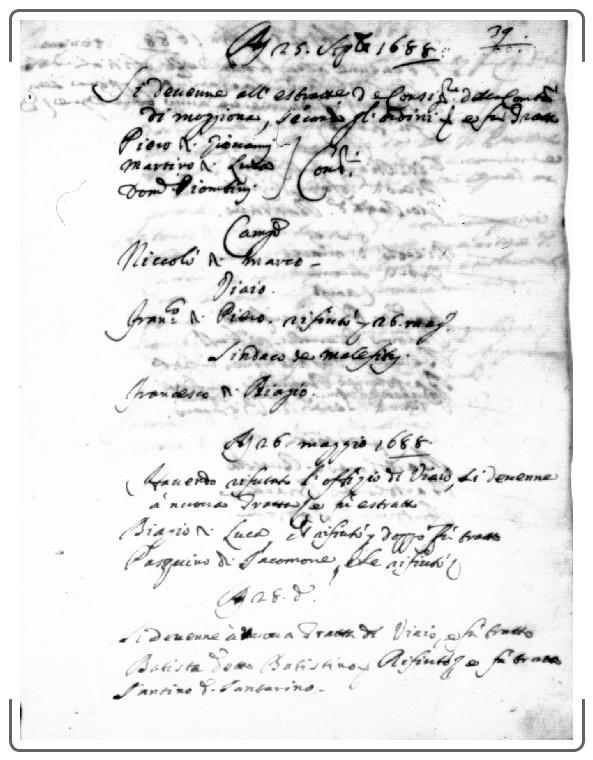 39.
Adj 25. Sqte 1688.
Si devenne all'estratte de Consi.ri della Com.tà
di moggiona, secondo gl'ordini, e fu tratto
Piero di Giovanni
Martino di Luca
Dom.co Piombini
Cons.ri
Camp.o
Niccolò di Marco -
Viaio.
Fran.co di Piero. rifiutò 26. mag.
Sindaco de malefitij.
Francesco di Biagio.
Adj 26. maggio 1688
Havendo rifiutato l'offizio di Viaio, si devenne
à nuova Tratta, e fù estratto
Biagio di Luca, rifiutò, doppo fù tratto
Pasquino di Jacomone, che rifiutò
Adj 28. d.o
Si devenne à nuova Tratta di Viaio, e fù tratto
Batista detto Batistino, Rifiutò, e fù tratto
Santino di Santarino.